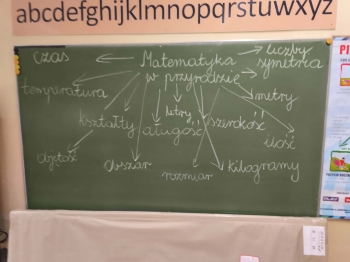 abcdefghijklmnopqrstuwxyz
czas
Matematyka
w przyrodzie
liczby
symetria
temperatura
metry
kształty
litry
długość
szerokość
ilość
objętość
obszar
rozmiar
kilogramy